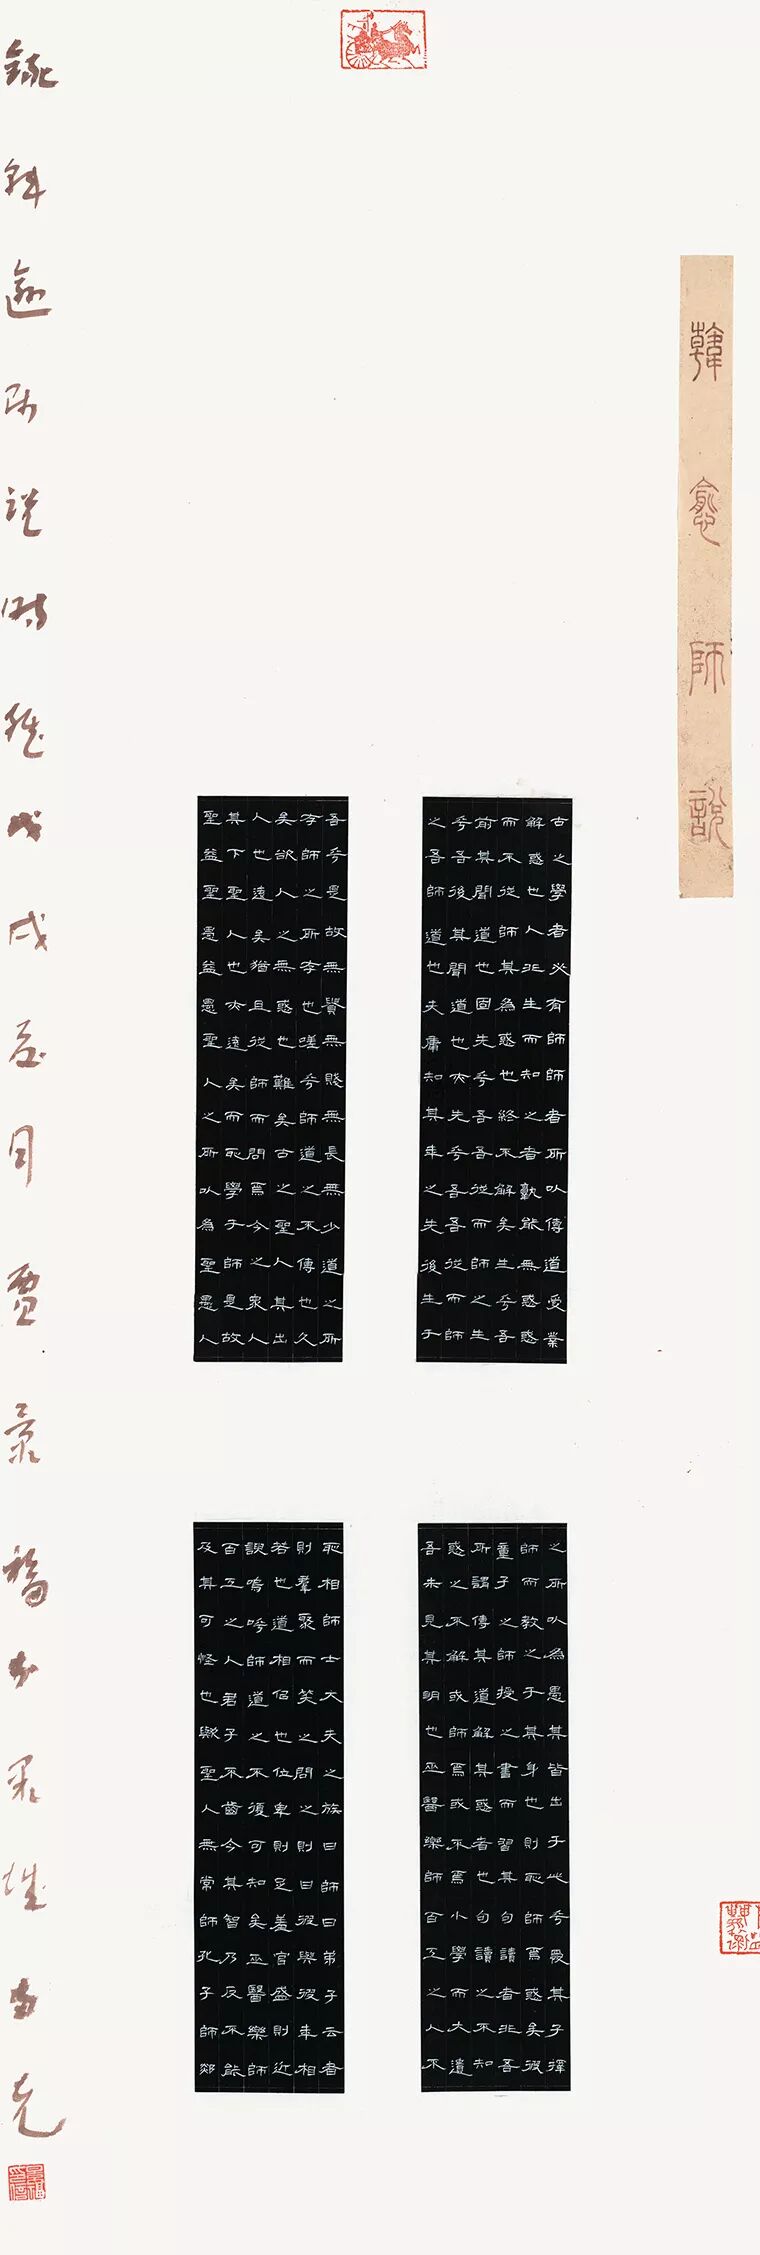 韓愈師說
古之學者必有師師者所以傳道受業
解惑也人非生而知之者孰能無惑惑
而不從師其為惑也終不解矣生乎吾
前其聞道也固先乎吾吾從而師之生
乎吾後其聞道也亦先乎吾吾從而師
之吾師道也夫庸知其年之先後生于
吾乎是故無貴無賤無長無少道之所
存師之所存也嗟乎師道之不傳也久
矣欲人之無惑也難矣古之聖人其出
人也遠矣猶且從師而問焉今之眾人
其下聖人也亦遠矣而恥學于師是故
聖益聖愚益愚聖人之所以為聖愚人
之所以為愚其皆出于此乎愛其子擇
師而教之于其身也則恥師焉惑矣彼
童子之師授之書而習其句讀者非吾
所謂傳其道解其惑者也句讀之不知
惑之不解或師焉或不焉小學而大遺
吾未見其明也巫醫樂師百工之人不
恥相師士大夫之族曰師曰弟子云者
則羣聚而笑之問之則曰彼與彼年相
若也道相佀也位卑則足羞官盛則近
諛嗚呼師道之不復可知矣巫醫樂師
百工之人君子不齒今其智乃反不能
及其可怪也歟聖人無常師孔子師郯
錄韓愈師說時維戊戌夏月賈景福於